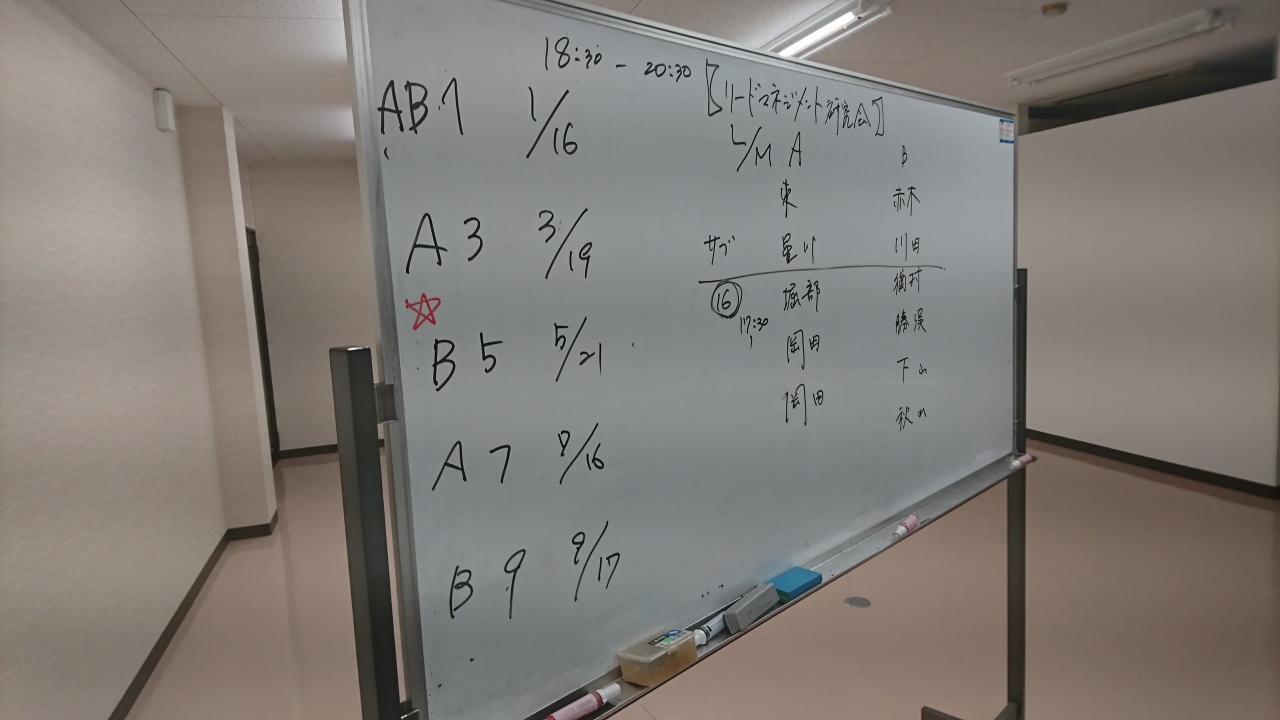 18:30 - 20:30
AB 1 1/16
A 3 3/19
☆
B 5 5/21
A 7 7/16
B 9 9/17
【リードマネジメント研究会】
L/M A B
東 赤木
サブ 星川 川田
⑯ 堀部
17:30 岡田 勝俣
岡田 下山
秋山